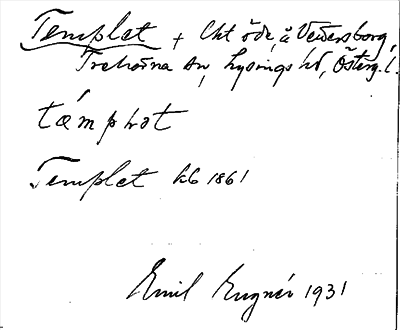 Templet + Cht öde, å Veversborg,
Trehörna sn, Lysings hd, Österg. l.
tæmplət
Templet kb 1861
Emil 1931